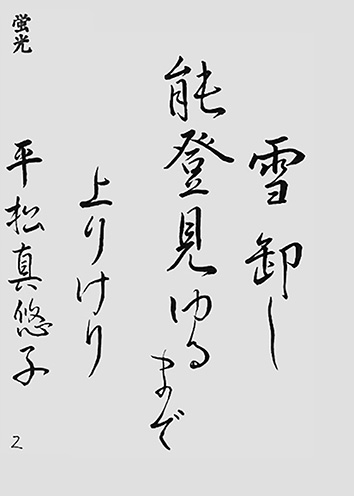 雪卸し
能登見ゆるまで
上りけり
平松真悠子
蛍光
2